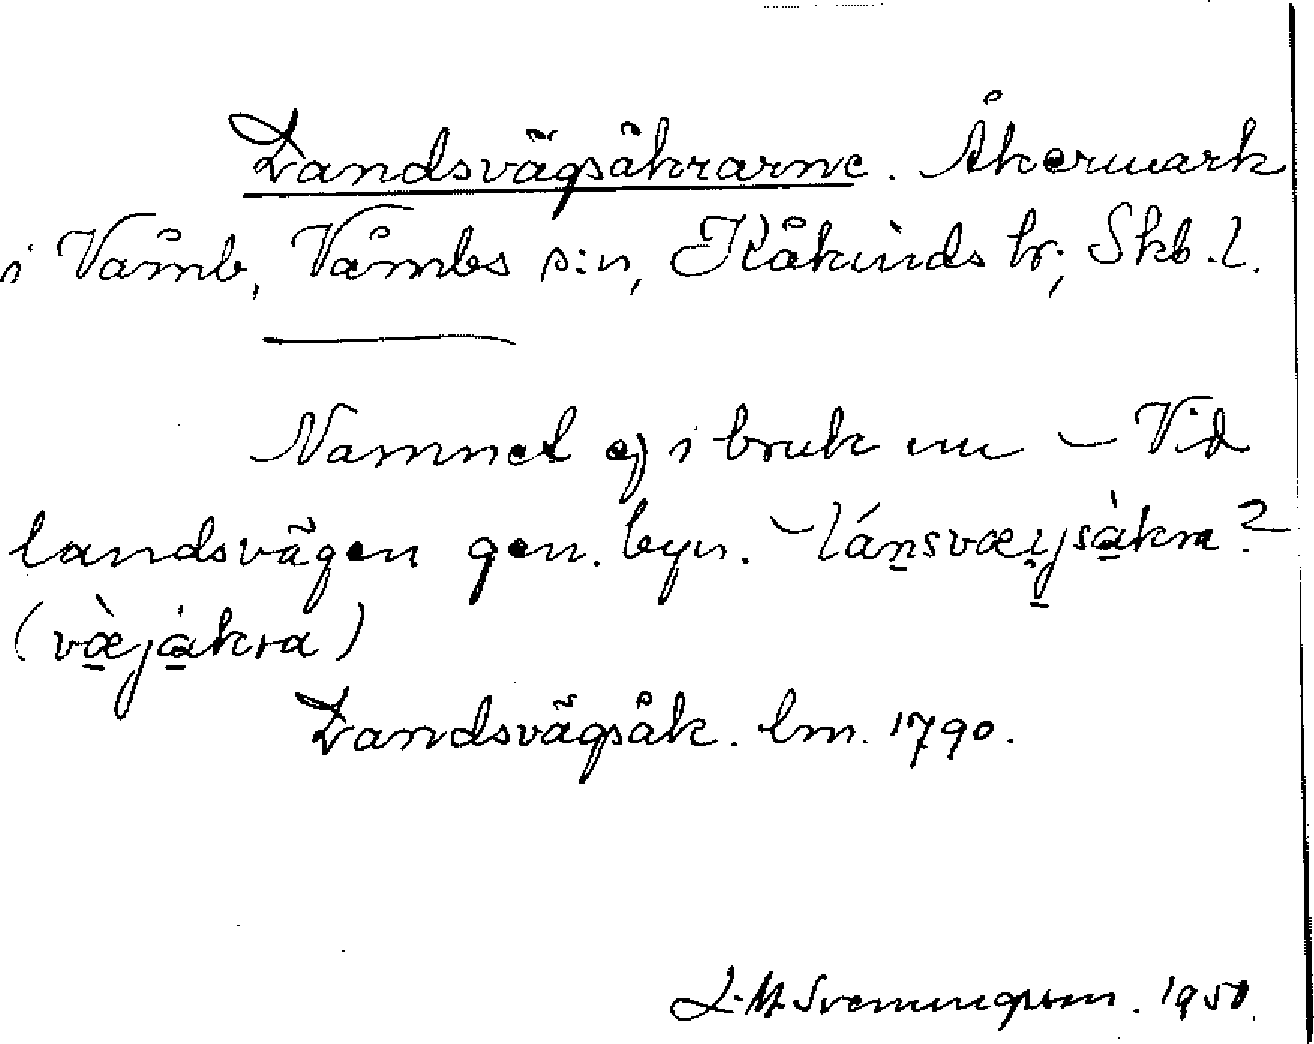 Landsvägsåkrarne. Åkermark
i Våmb, Våmbs s:n, Kåkinds hr, Skb. l.
Namnet ej i bruk nu – Vid
landsvägen gen. byn. – lánsvæysàkra?
(væ̀jåkra)
Landsvägsåk. lm. 1790.
L. M. Svenungsson. 1951.